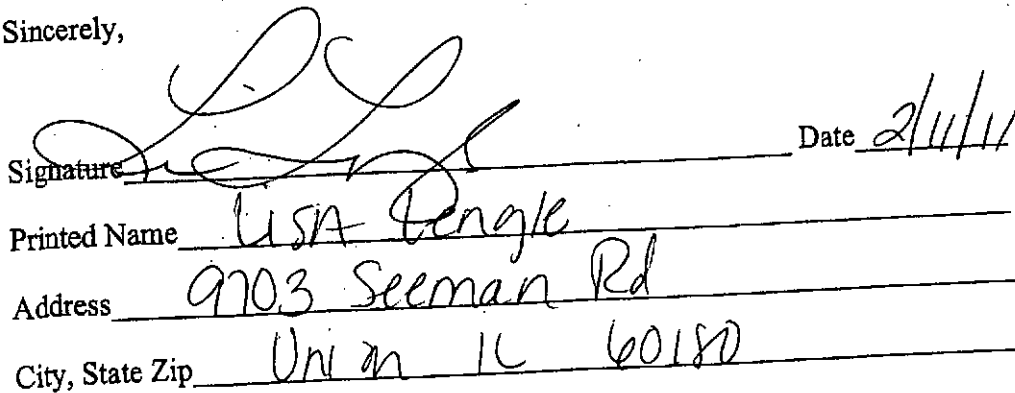 Sincerely,
Signature Date 2/11/11
Printed Name LISA Lengle
Address 9703 Seeman Rd
City, State Zip Union IL 60180